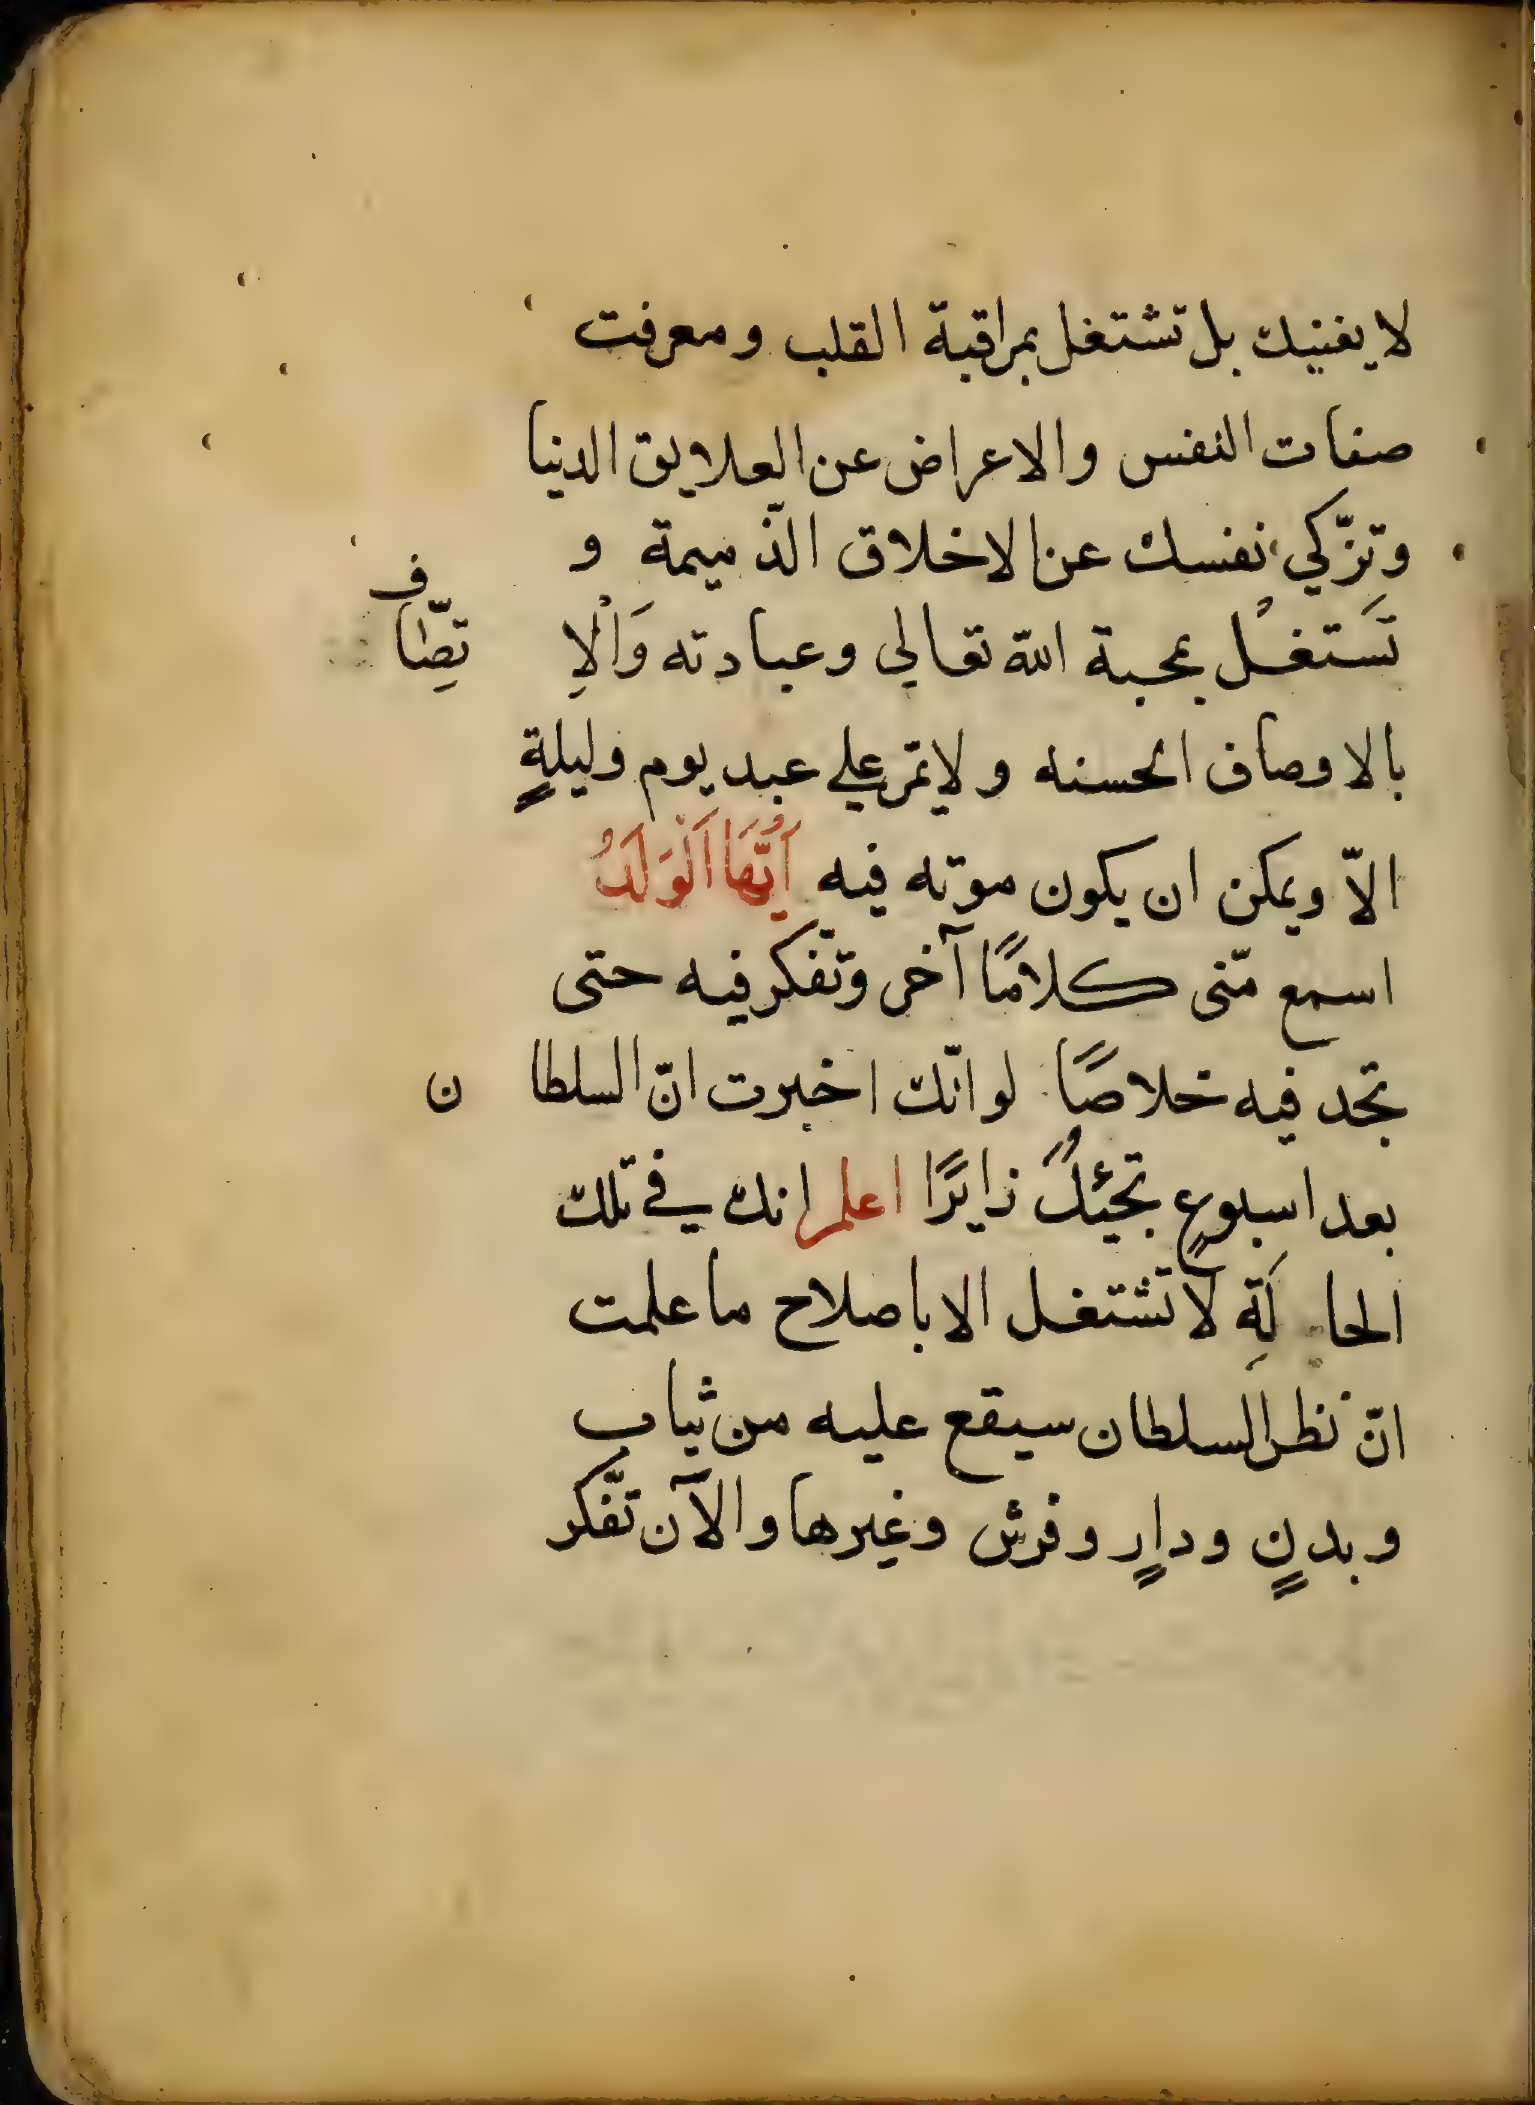 لا يغنيك بل تشتغل بمراقبة القلب ومعرفت
صفات النفس والاعراض عن العلايق الدنيا
وتزّكي نفسك عن الاخلاق الذّميمة و
تَستغلُ بمحبة الله تعالى وعبادته وَالْاِتِصّاف
بالاوصاف الحسنه ولا يمّر علي عبد يوم وليلةٍ
الاّ ويمكن ان يكون موته فيه اَيُّهَا اَلْوَلَدُ
اسمع منّى كلامًا آخر وتفكر فيه حتى
تجد فيه خلاصًا لو انّك اخبرت انّ السلطان
بعد اسبوعٍ تجيئُك زايرًا اعلم انك في تلك
الحالَةِ لا تشتغل الا باصلاح ما علمت
انّ نظر السلطان سيقع عليه من ثياب
وبدنٍ ودارٍ وفرش وغيرها والآن تفّكر